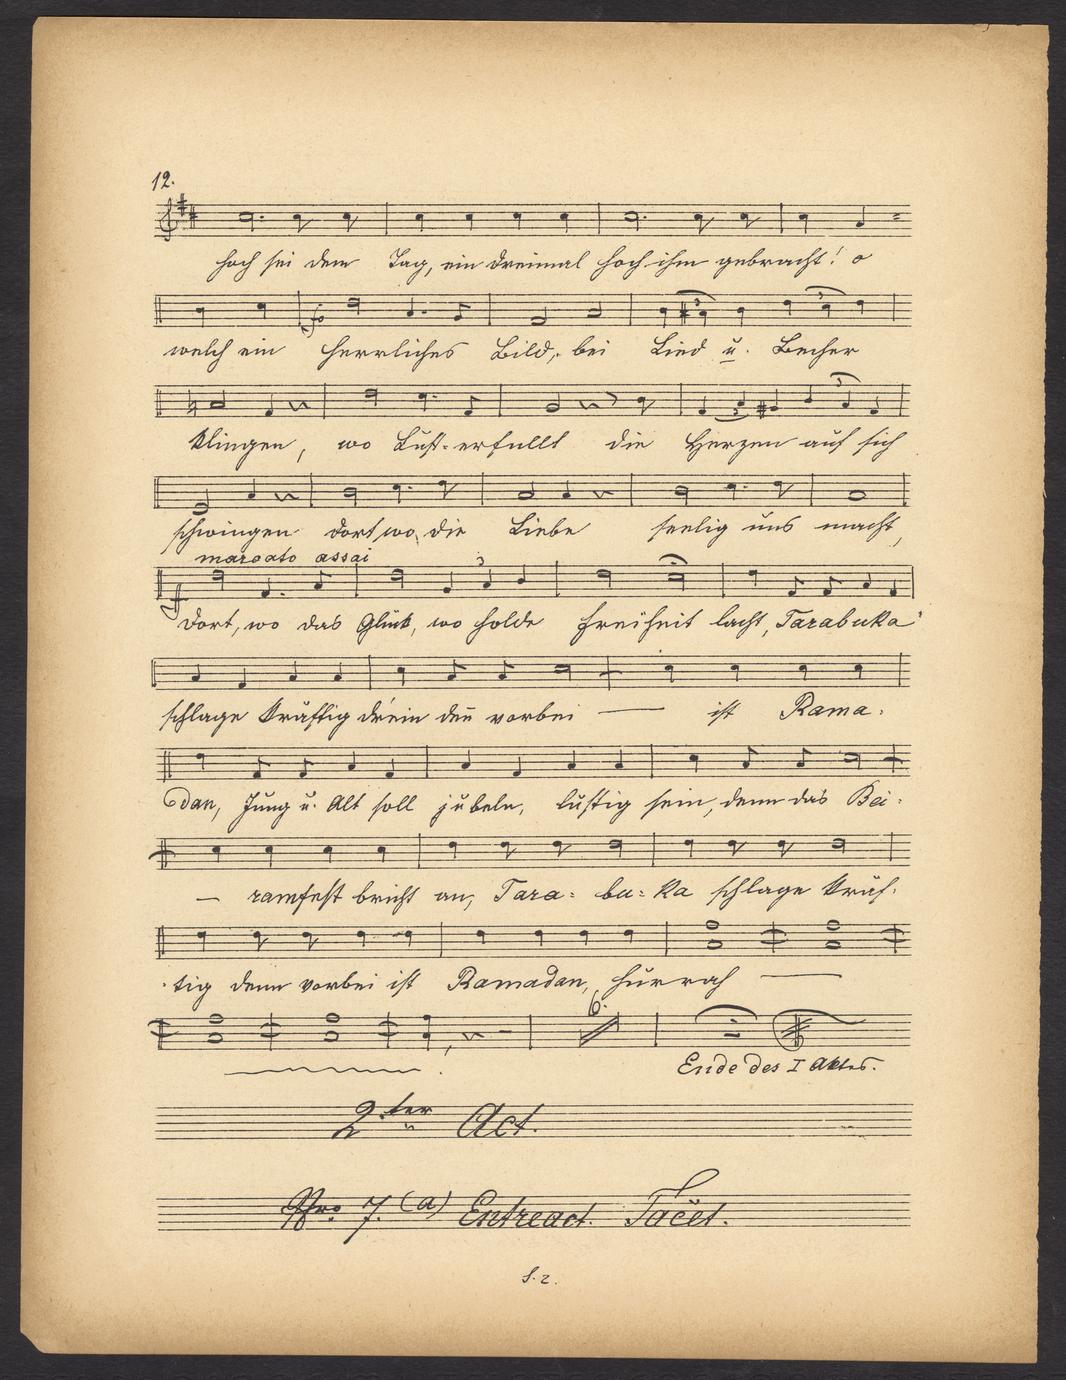 12.
hoch sei dem Tag, ein dreimal hoch ihm gebracht! o
welch ein herrliches Bild, bei Lied u. Becher
klingen, wo Lust-erfüllt die Herzen auf sich
schwingen dort, wo die Liebe seelig uns macht,
marcato assai
dort, wo das Glück, wo holde Freiheit lacht, Tarabuka
schlage kräftig drein deñ vorbei — ist Rama-
dan, Jung u. Alt soll jubeln, lustig sein, denn das Bei-
— ramfest bricht an, Tara- bu- ka schlage kräf-
tig denn vorbei ist Ramadan, hurrah —
6.
Ende des I Aktes.
2ter Act.
Nro 7. (a) Entreact. Tacet.
S. 2.